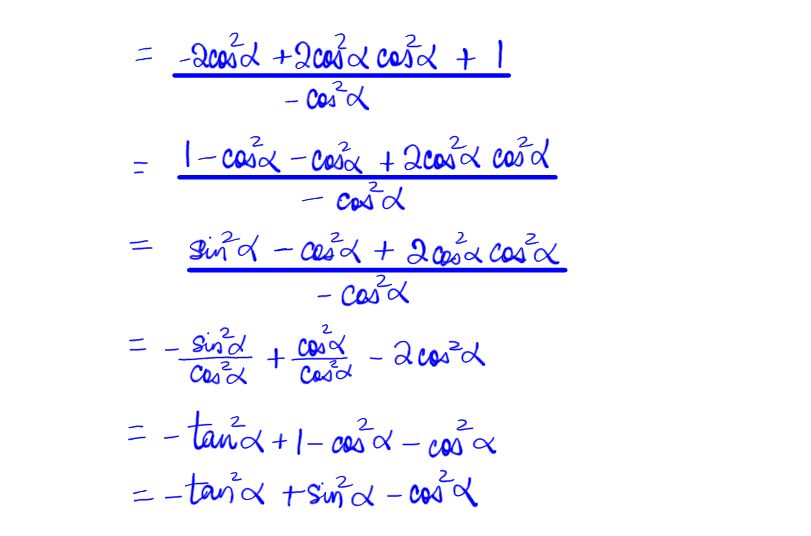 = (-2cos²α + 2cos²α cos²α + 1) / (-cos²α)
= (1 - cos²α - cos²α + 2cos²α cos²α) / (-cos²α)
= (sin²α - cos²α + 2cos²α cos²α) / (-cos²α)
= - sin²α/cos²α + cos²α/cos²α - 2cos²α
= -tan²α + 1 - cos²α - cos²α
= -tan²α + sin²α - cos²α